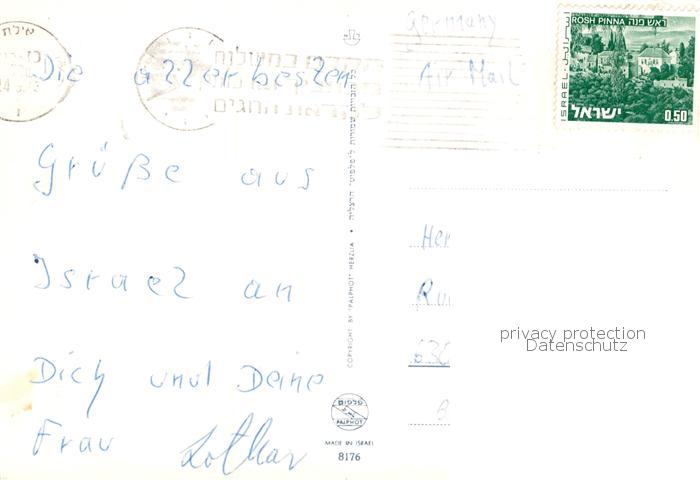 Die allerbesten
Grüße aus
Israel an
Dich und Deine
Frau Lothar
Germany
Air Mail
ROSH PINNA ראש פנה
ISRAEL
ישראל 0.50
אילת
כל הזכויות שמורות לפלפוט הרצליה • COPYRIGHT BY "PALPHOT" HERZLIA
פלפוט
PALPHOT
MADE IN ISRAEL
8176
privacy protection
Datenschutz